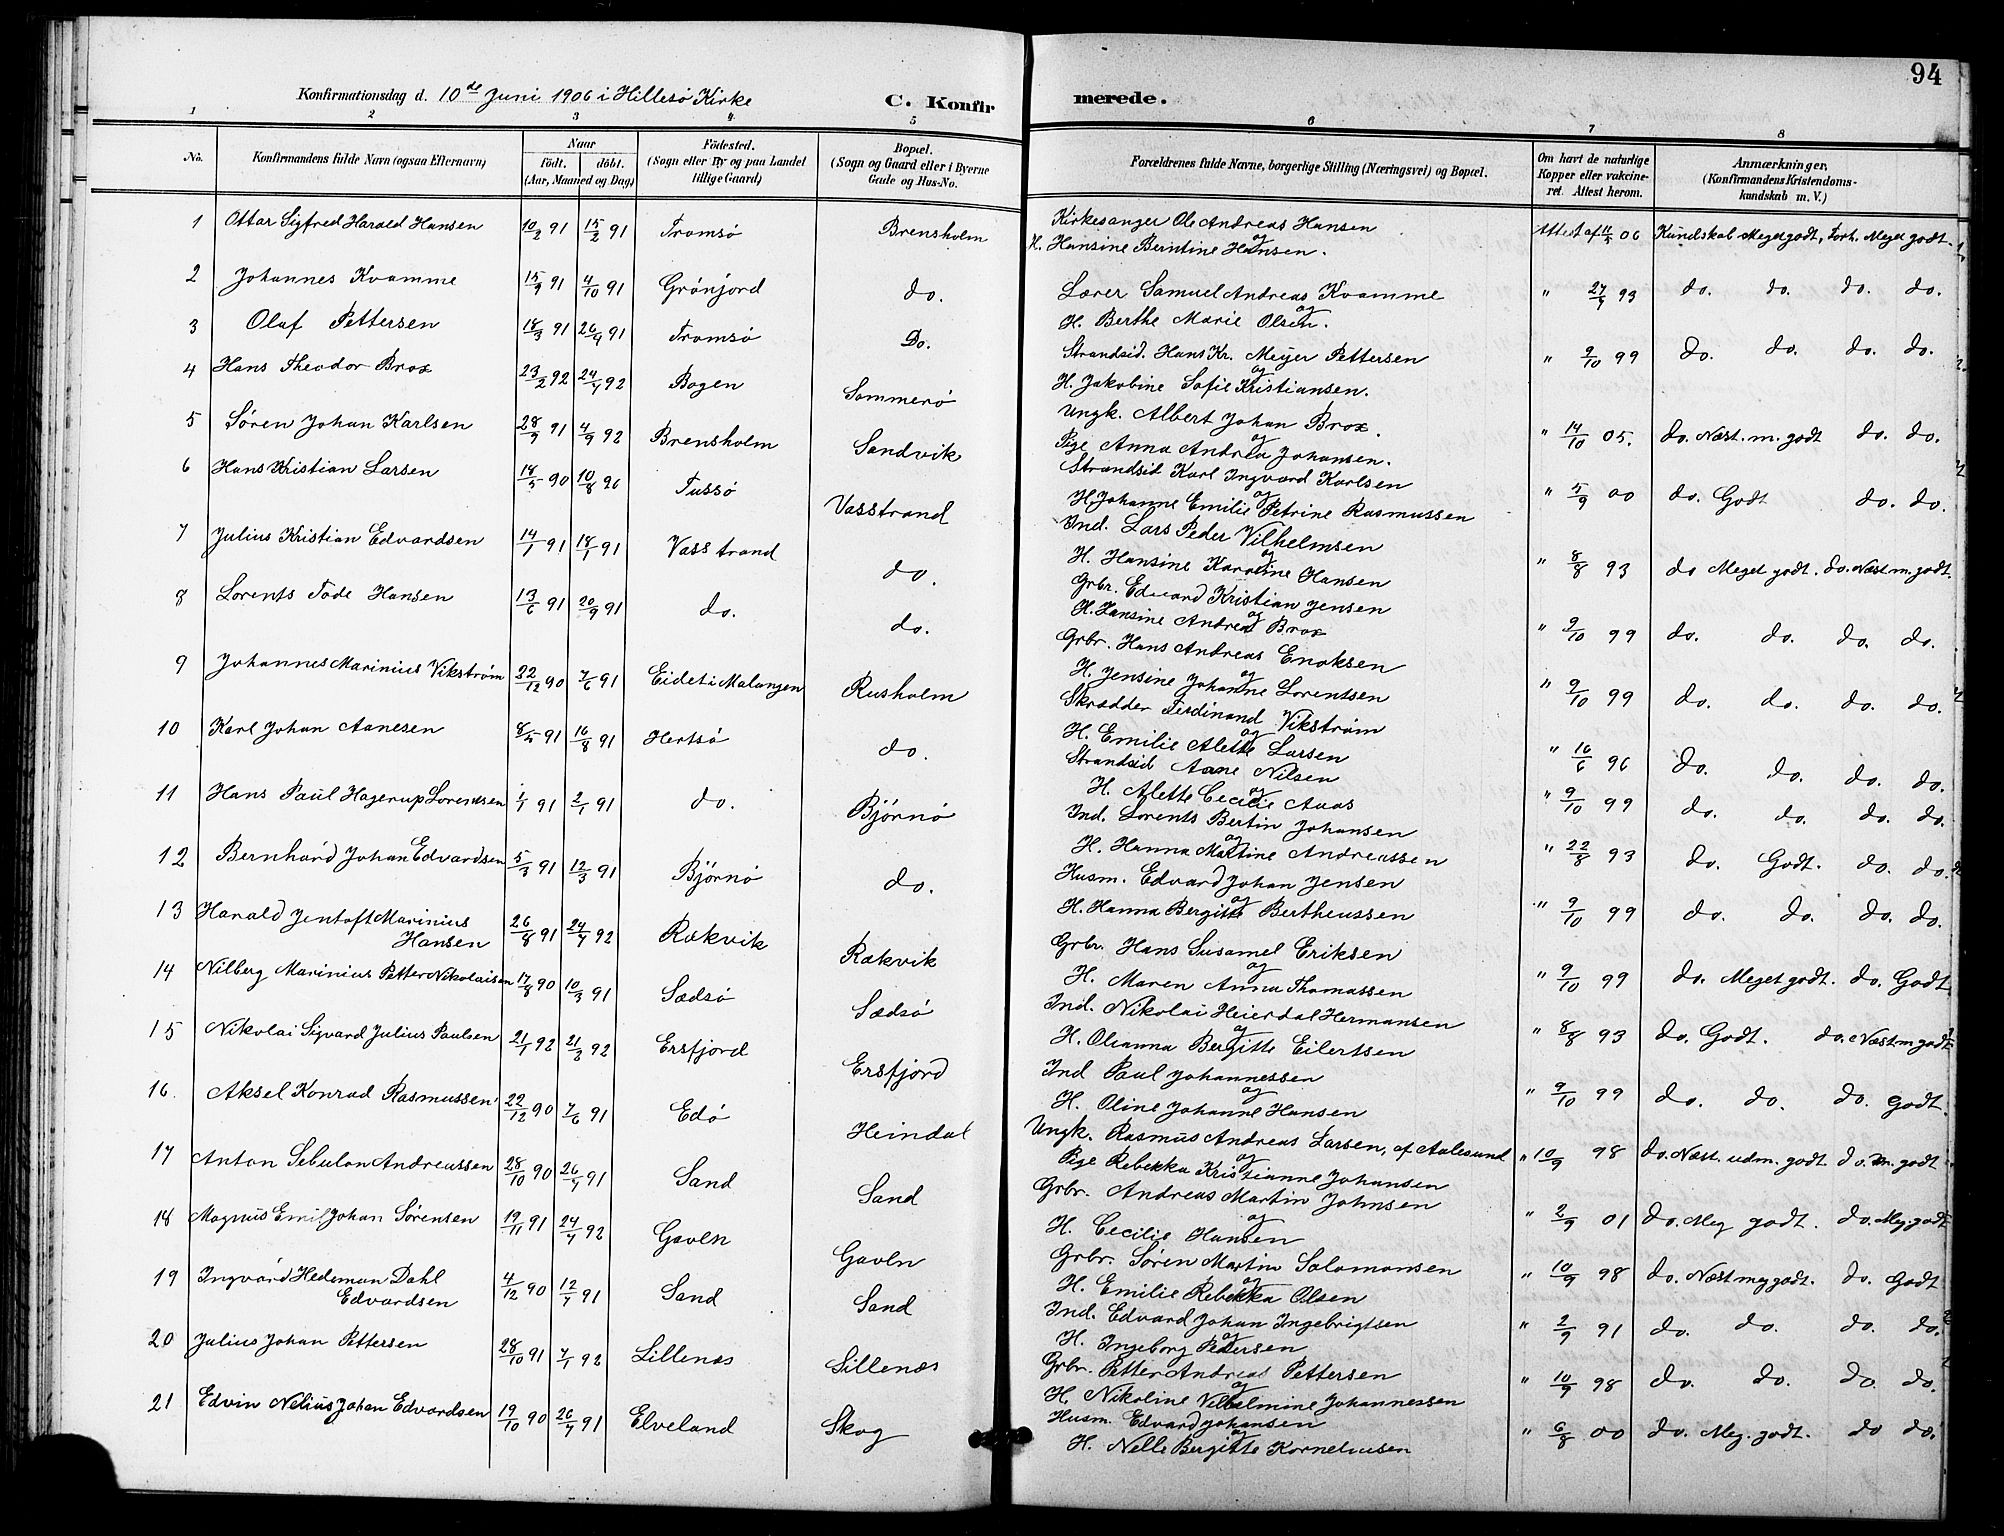 94
Konfirmationsdag d. 10de Juni 1906 i Hillesö Kirke C. Konfir merede.
1 2 3 4 5 6 7 8
No. Konfirmandens fulde Navn (ogsaa Efternavn) Naar födt. döbt. (Aar, Maaned og Dag) Födested. (Sogn eller By og paa Landet tillige Gaard) Bopæl. (Sogn og Gaard eller i Byerne Gade og Hus-No. Forældrenes fulde Navne, borgerlige Stilling (Næringsvei) og Bopæl. Om havt de naturlige Kopper eller vakcineret. Attest herom. Anmærkninger, (Konfirmandens Kristendomskundskab m. V.)
1 Ottar Sigfred Harald Hansen 10/2 91 15/2 91 Tromsö Brensholm Kirkesanger Ole Andreas Hansen og H. Hansine Berntine Hansen. Attest af 11/5 06 Kundskab Meget godt, Forh. Meget godt.
2 Johannes Kvamme 15/9 91 4/10 91 Grönjord do. Lærer Samuel Andreas Kvamme og H. Berthe Marie Olsen. " 27/9 93 do. do. do. do.
3 Olaf Pettersen 18/3 91 26/4 91 Tromsö Do. Strandsid. Hans Kr. Meyer Pettersen og H. Jakobine Sofie Kristiansen. " 9/10 99 do. do. do. do.
4 Hans Theodor Brox 23/2 92 24/4 92 Bogen Sommerö Ungk. Albert Johan Brox. og Pige Anna Andrea Johansen. " 14/10 05. do. Næst. m. godt do. do.
5 Søren Johan Karlsen 28/9 91 4/9 92 Brensholm Sandvik Strandsid Karl Ingvard Karlsen og H. Johanne Emilie Petrine Rasmussen " 5/9 00 do. Godt do. do.
6 Hans Kristian Larsen 18/5 90 10/8 90 Tussö Vasstrand Ind. Lars Peder Vilhelmsen og H. Hansine Karoline Hansen " 8/8 93 do Meget godt. do. Næst m. godt.
7 Julius Kristian Edvardsen 14/1 91 18/1 91 Vasstrand do. Grbr. Edvard Kristian Jensen og H. Hansine Andrea Brox " 9/10 99 do. do. do. do.
8 Lorents Tode Hansen 13/6 91 20/9 91 do. do. Grbr. Hans Andreas Enoksen og H. Jensine Johanne Lorentsen " 9/10 99 do. do. do. do.
9 Johannes Marinius Vikström 22/12 90 7/6 91 Eidet i Malangen Rusholm Skrædder Ferdinand Vikström og H. Emilie Alette Larsen " 16/6 96 do. do. do. do.
10 Karl Johan Aanesen 8/5 91 16/8 91 Hertsö do. Strandsid Aane Nilsen og H. Alette Cecilie Aaas " 9/10 99 do. do. do. do.
11 Hans Paul Hagerup Lorentsen 1/1 91 2/1 91 do. Björnö Ind. Lorents Bertin Johansen og H. Hanna Martine Andreassen " 22/8 93 do. Godt. do. do.
12 Bernhard Johan Edvardsen 5/3 91 12/3 91 Björnö do. Husm. Edvard Johan Jensen og H. Hanna Bergitte Bertheussen " 9/10 99 do. do. do. do.
13 Harald Jentoft Marinius Hansen 26/8 91 24/4 92 Rækvik Rækvik Grbr. Hans Susamel Eriksen og H. Maren Anna Thomassen " 9/10 99 do. Meget godt. do. Godt
14 Nilberg Marinius Petter Nikolaisen 17/8 90 10/3 91 Sædsö Sædsö Ind. Nikolai Heierdal Hermansen og H. Olianna Bergitte Eilertsen " 8/8 93 do. Godt. do. Næst m godt
15 Nikolai Sigvard Julius Paulsen 21/1 92 21/2 92 Ersfjord Ersfjord Ind Paul Johannessen og H. Oline Johanne Hansen " 9/10 99 do. do. do. Godt.
16. Aksel Konrad Rasmussen 22/12 90 7/6 91 Edö Heindal Ungk. Rasmus Andreas Larsen, af Aalesund og Pige Rebekka Kristianne Johansen " 10/9 98 do. Næst. udm. godt. do. m. godt
17 Anton Sebulon Andreassen 28/10 90 26/4 91 Sand Sand Grbr. Andreas Martin Johnsen og H. Cecilie Hansen " 2/9 01 do. Meg godt. do. Meg. godt
18 Magnus Emil Johan Sørensen 19/11 91 24/4 92 Gavlen Gavlen Grbr. Søren Martin Salamonsen og H. Emilie Rebekka Olsen " 10/9 98 do. Næst meg godt. do. Godt
19 Ingvard Hedeman Dahl Edvardsen 4/12 90 12/4 91 Sand Sand Ind. Edvard Johan Ingebrigtsen og H. Ingeborg Pedersen " 2/9 91 do. do. do. do.
20 Julius Johan Pettersen 28/10 91 7/1 92 Lillenæs Lillenæs Grbr. Petter Andreas Pettersen og H. Nikoline Vilhelmine Johannessen " 10/9 98 do. do. do. do.
21 Edvin Nelius Johan Edvardsen 19/10 90 26/4 91 Elveland Skog Husm. Edvard Johansen og H. Nelle Bergitte Korneliusen " 6/8 00 do. Meg. godt. do do.